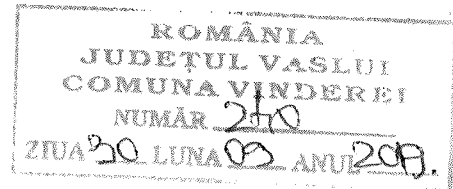 ROMÂNIA
JUDEȚUL VASLUI
COMUNA VINDEREI
NUMĂR
ZIUA 30 LUNA 09 ANUL